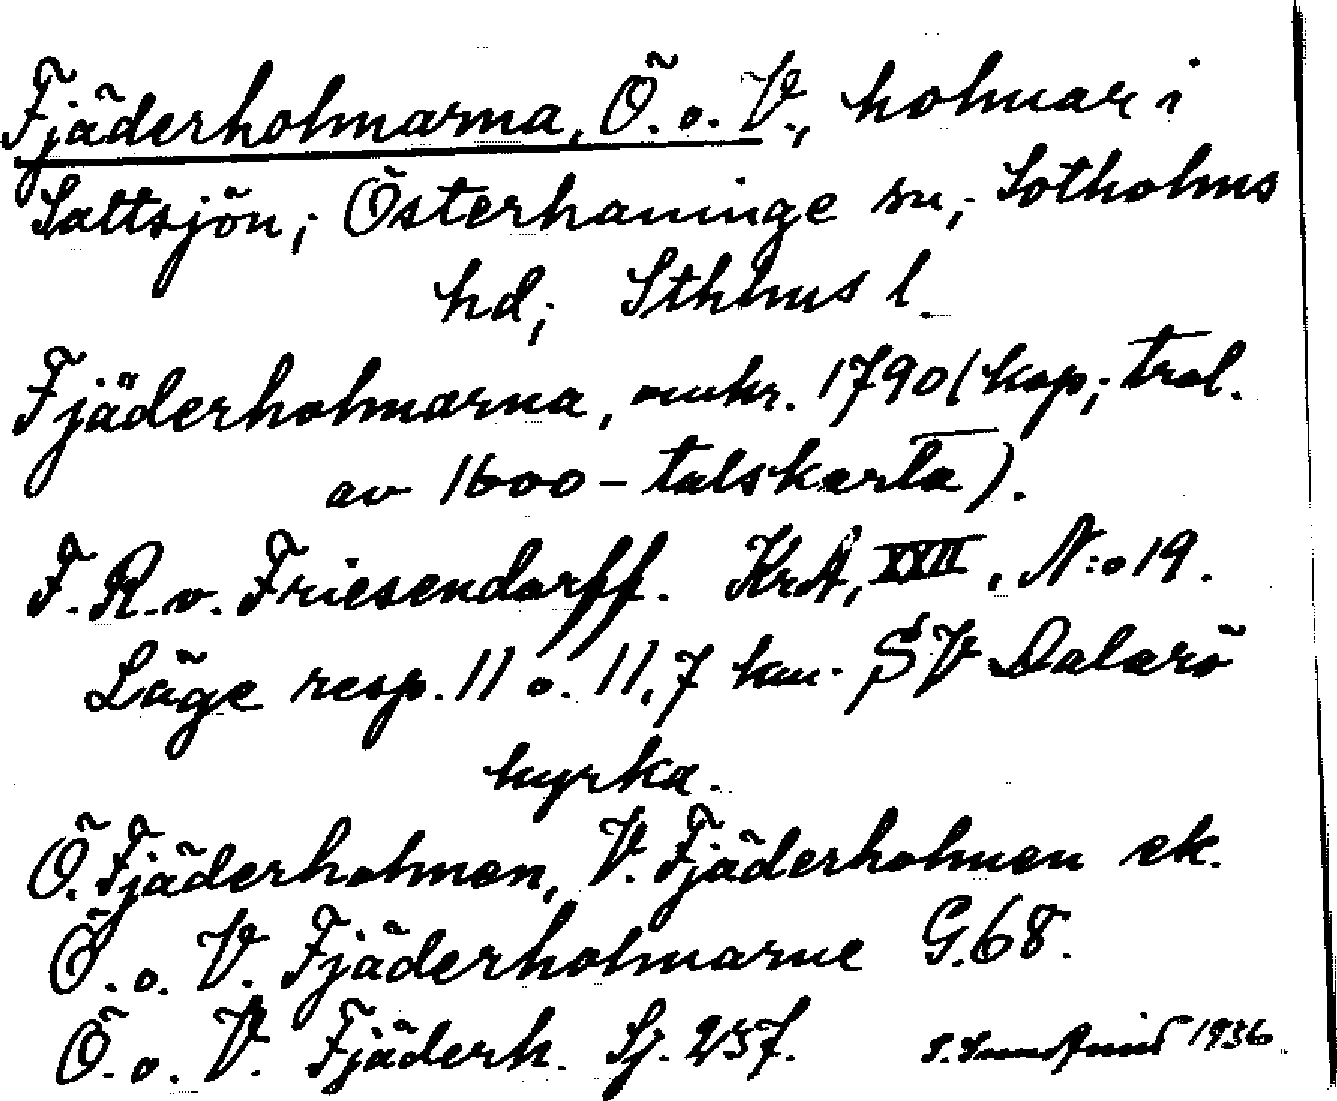 Fjäderholmarna, Ö. o. V., holmar i
Saltsjön; Österhaninge sn; Sotholms
hd; Sthlms l.
Fjäderholmarna, omkr. 1790 (kop; trol.
av 1600-talskarta).
F. R. v. Friesendorff. KrA, XXII, N:o 19.
Läge resp. 11 o. 11,7 km. SV Dalarö
kyrka.
Ö. Fjäderholmen, V. Fjäderholmen ek.
Ö. o. V. Fjäderholmarne G. 68.
Ö. o. V. Fjäderh. Sj. 257.
1936